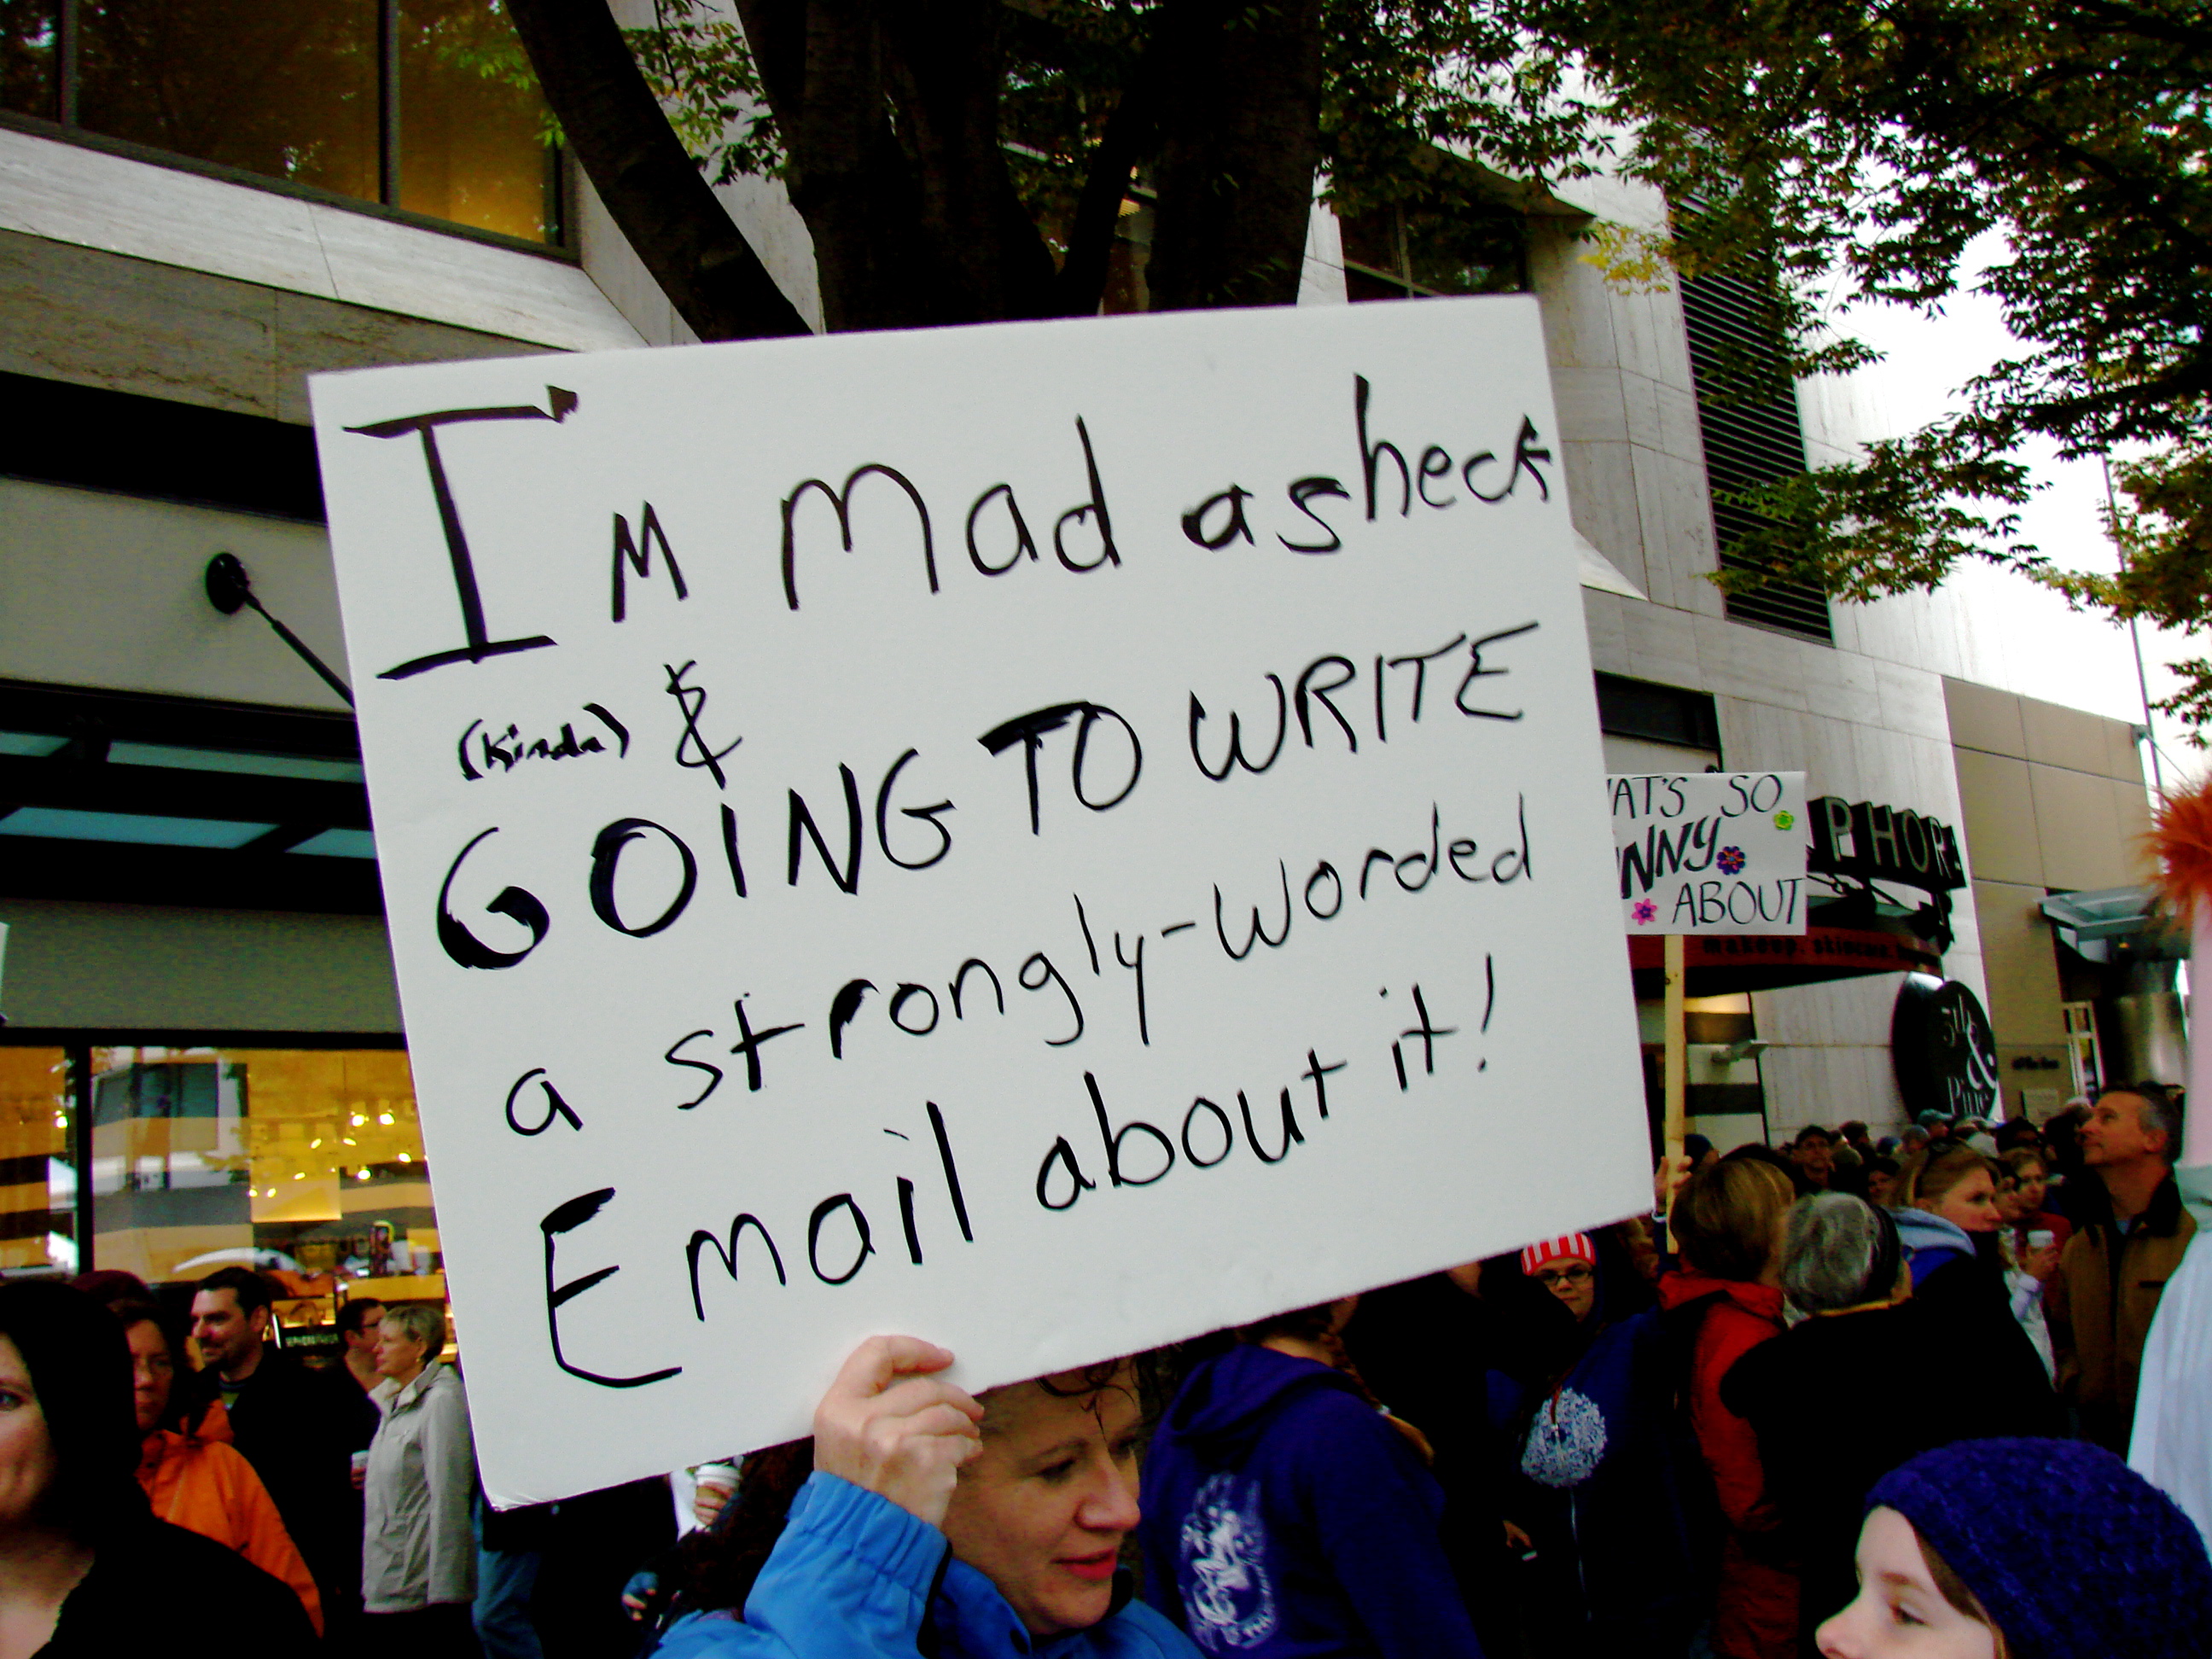 I'M Mad as heck
(kinda) &
GOING TO WRITE
a strongly-worded
Email about it!
AT'S SO
NNY
ABOUT
PHORA
makeup. skincare.
5th
&
Pine